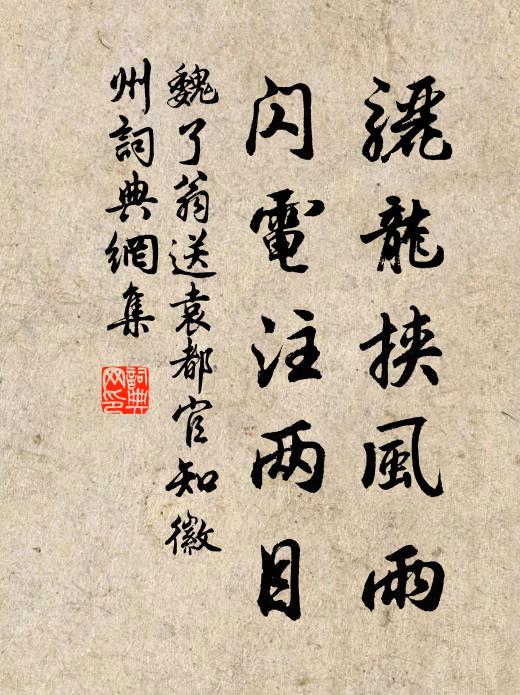 驪龍挾風雨
閃電注两目
魏了翁送袁都官知徽
州詞典網集
詞典
网印